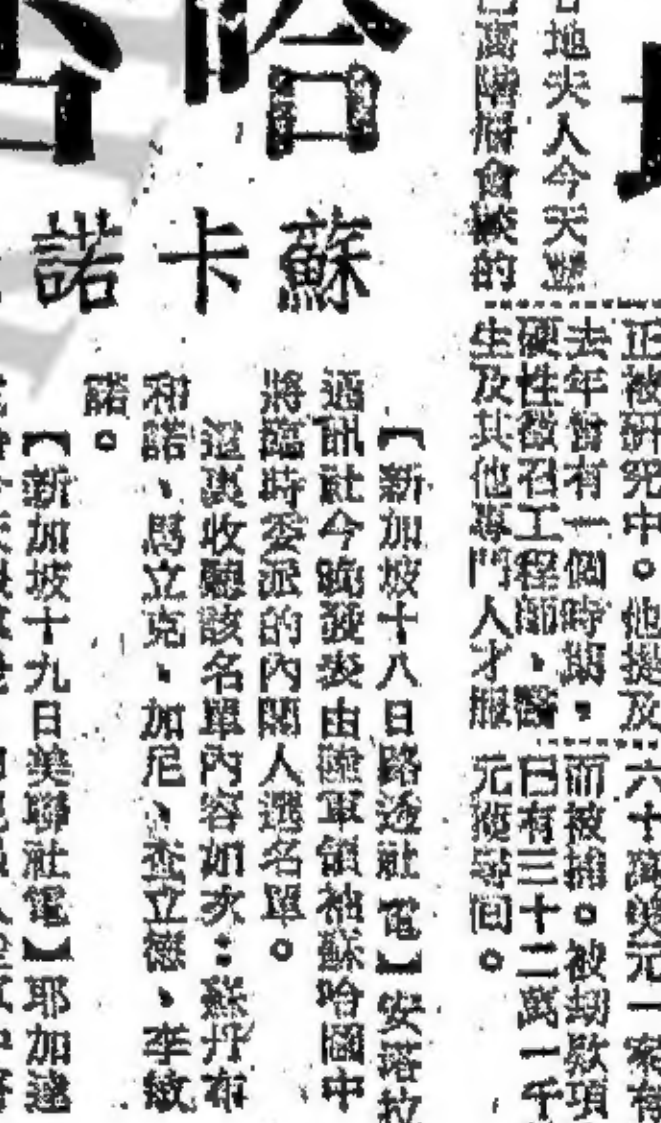 地夫人今天並
高階層會談的
正被研究中。他提及
去年曾有一個時期,
硬性徵召工程師、醫
生及其他專門人才服
六十萬美元一案有
而被捕。被刧欵項
已有三十二萬一千
元獲尋回。
哈
蘇卡諾
【新加坡十八日路透社電】安塔拉
通訊社今晚發表由陸軍領袖蘇哈圖中
將臨時委派的內閣人選名單。
這裏收聽該名單內容如次:蘇丹布
和諾、馬立克、加尼、查立德、李敏
諾。
【新加坡十九日美聯社電】耶加達